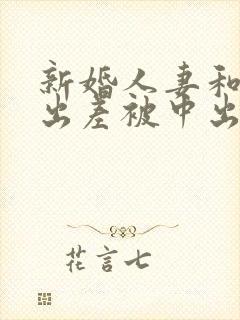 新婚人妻和
出差被中出
花言七